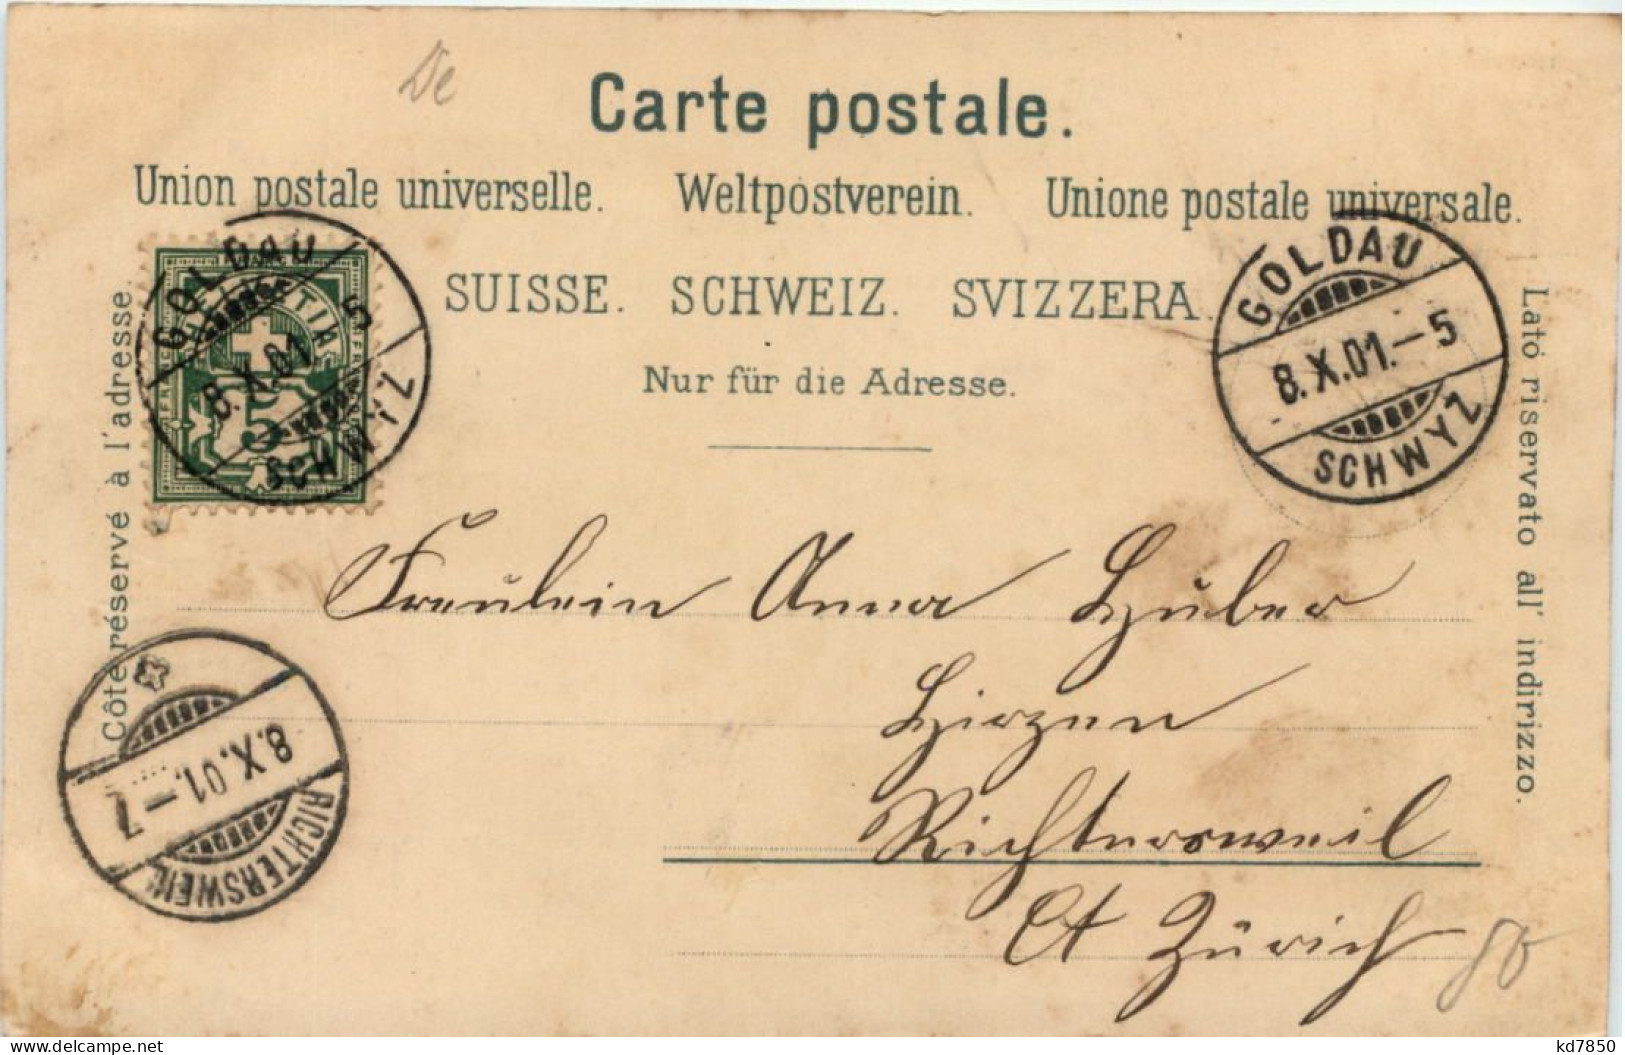 De
Carte postale.
Union postale universelle. Weltpostverein. Unione postale universale.
SUISSE. SCHWEIZ. SVIZZERA.
Nur für die Adresse.
Côté réservé à l'adresse.
Lato riservato all' indirizzo.
GOLDAU
8.X.01.-5
SCHWYZ
HELVETIA
5
GOLDAU
8.X.01.-5
SCHWYZ
Fräulein Anna Huber
Hirzen
Richtersweil
Ct Zürich
8.X.01.-7
RICHTERSWEIL
80
kd7850